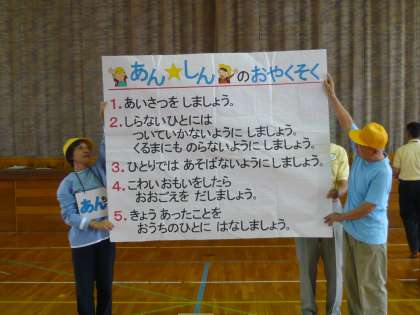 あん★しんのおやくそく
1. あいさつを しましょう。
2. しらないひとには
ついていかないように しましょう。
くるまにも のらないように しましょう。
3. ひとりでは あそばないように しましょう。
4. こわい おもいをしたら
おおごえを だしましょう。
5. きょう あったことを
おうちのひとに はなしましょう。
あん